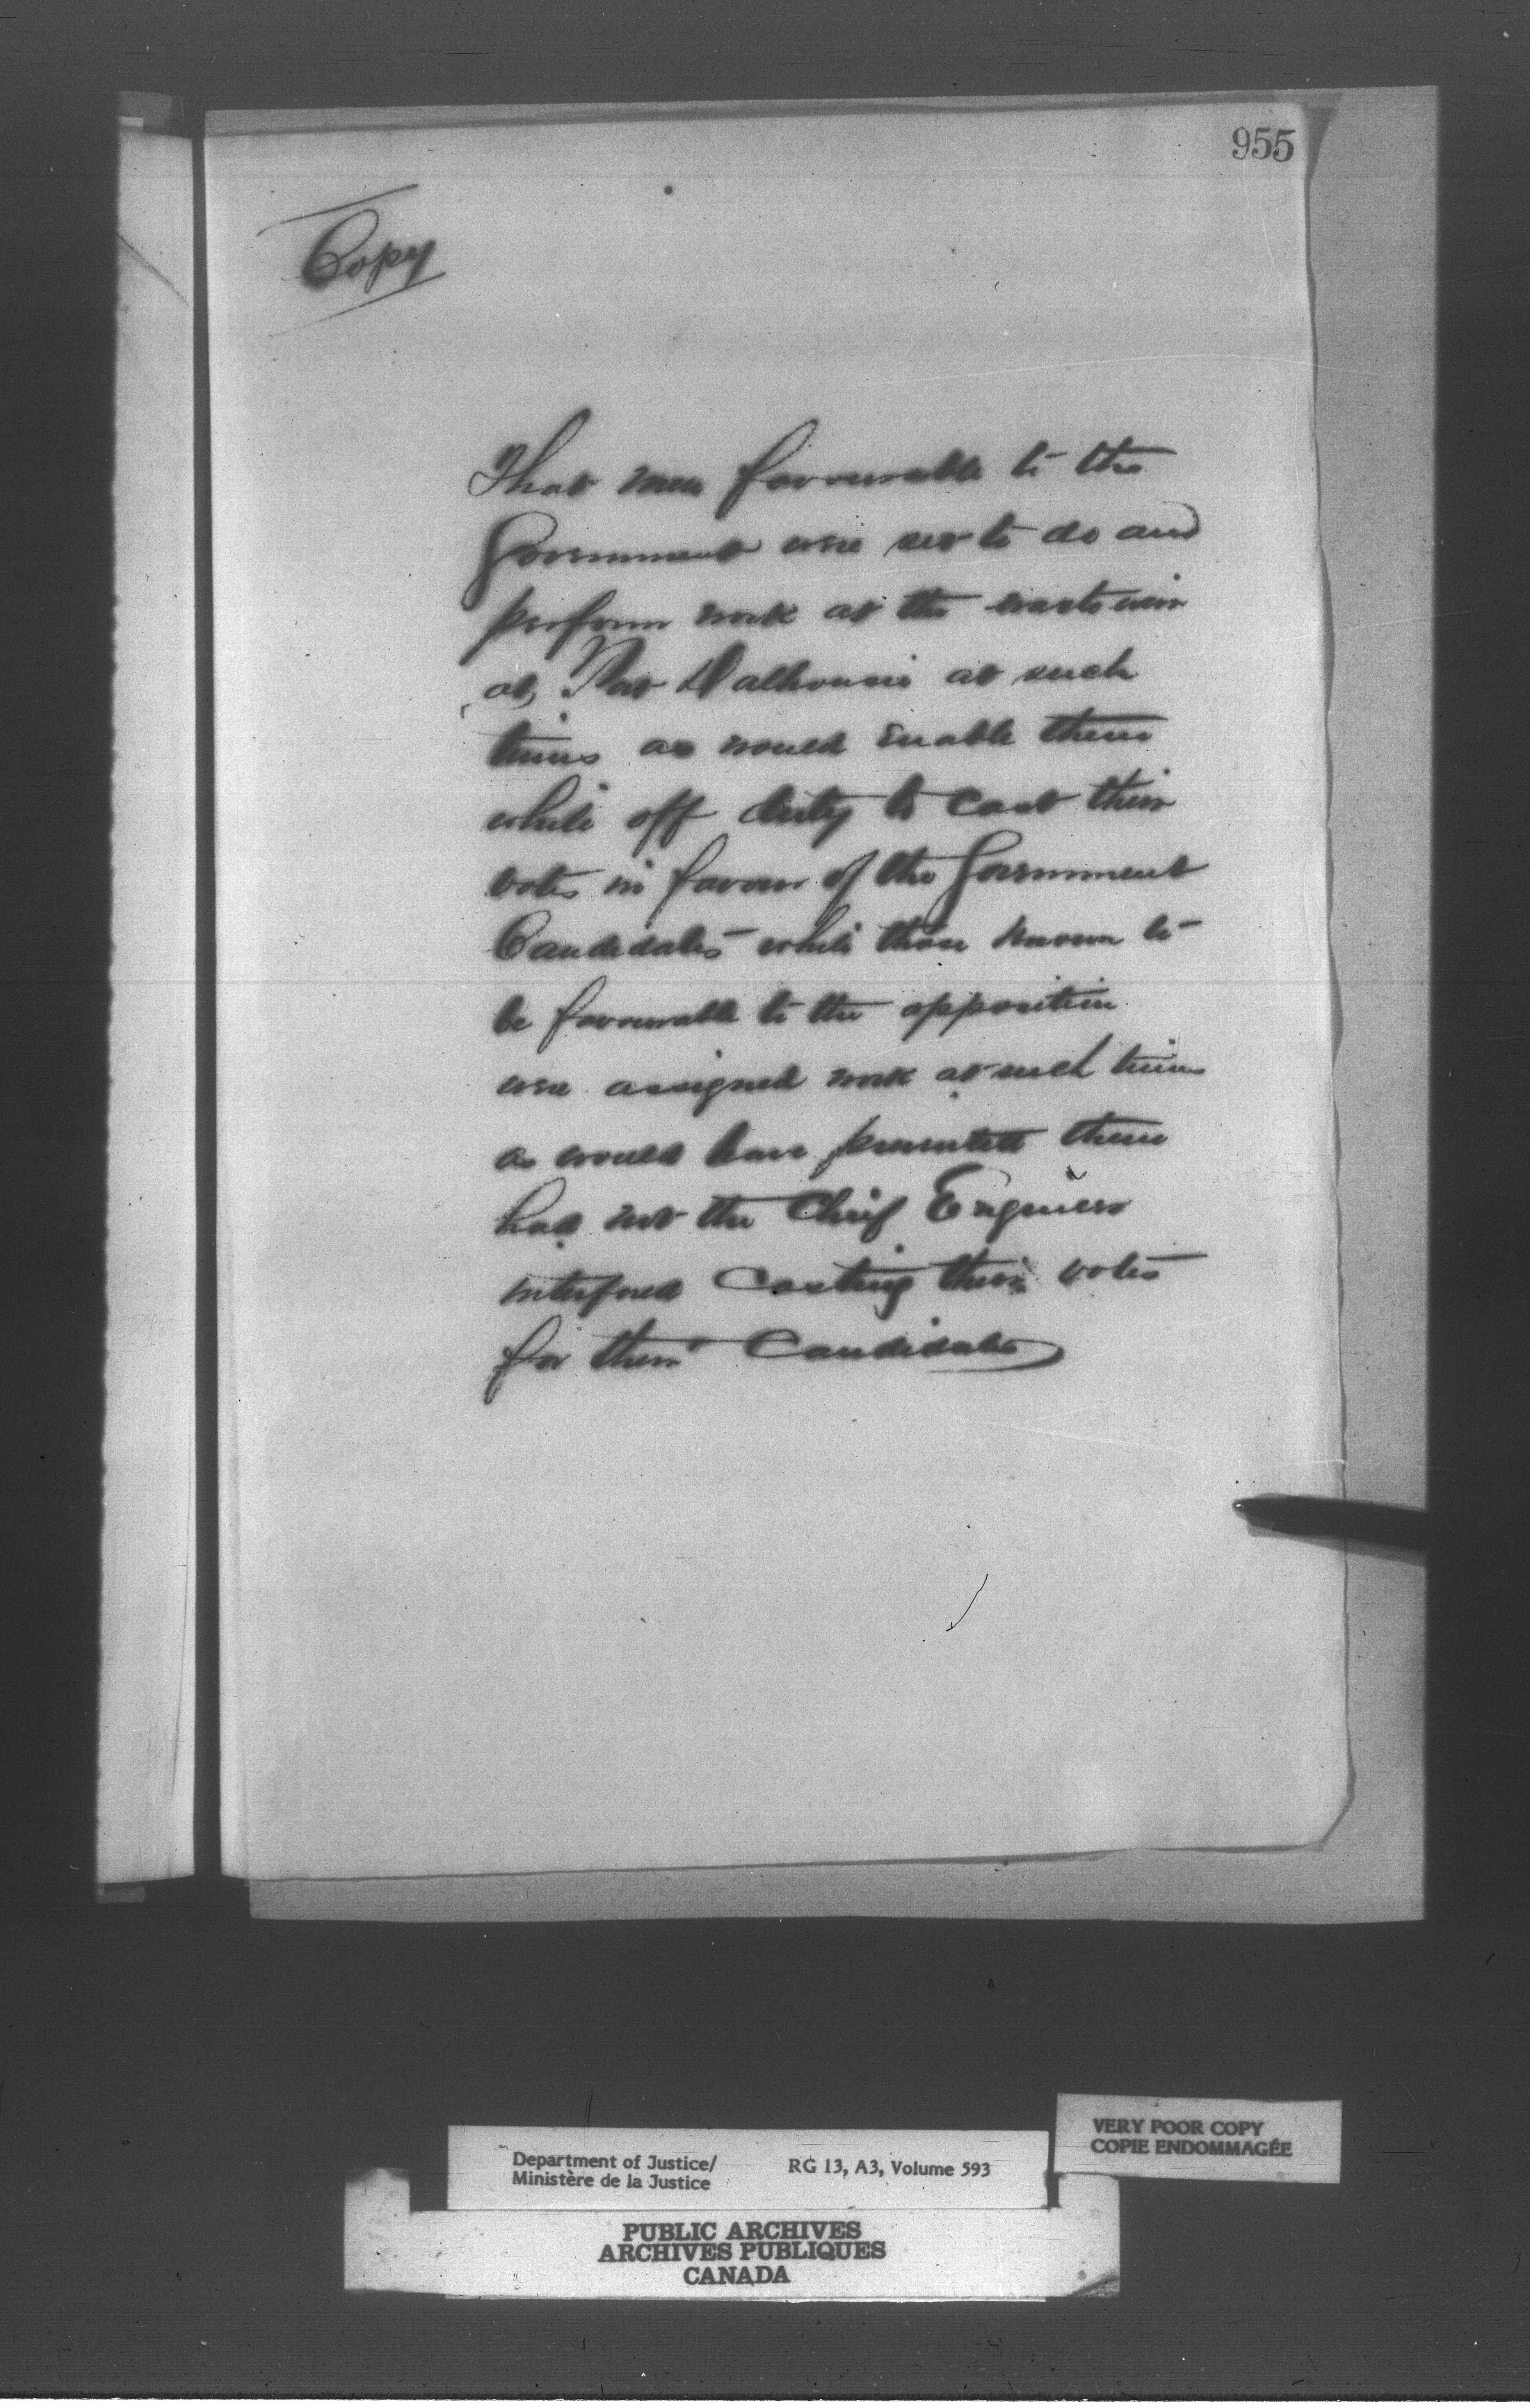 955
Copy
That men favourable to the
Government were set to do and
perform work at the waste weir
at Port Dalhousie at such
times as would enable them
while off duty to cast their
votes in favour of the Government
Candidates while those known to
be favourable to the opposition
were assigned work at such times
as would have prevented them
had not the Chief Engineer
interfered casting their votes
for their Candidates
VERY POOR COPY
COPIE ENDOMMAGÉE
Department of Justice/ RG 13, A3, Volume 593
Ministère de la Justice
PUBLIC ARCHIVES
ARCHIVES PUBLIQUES
CANADA